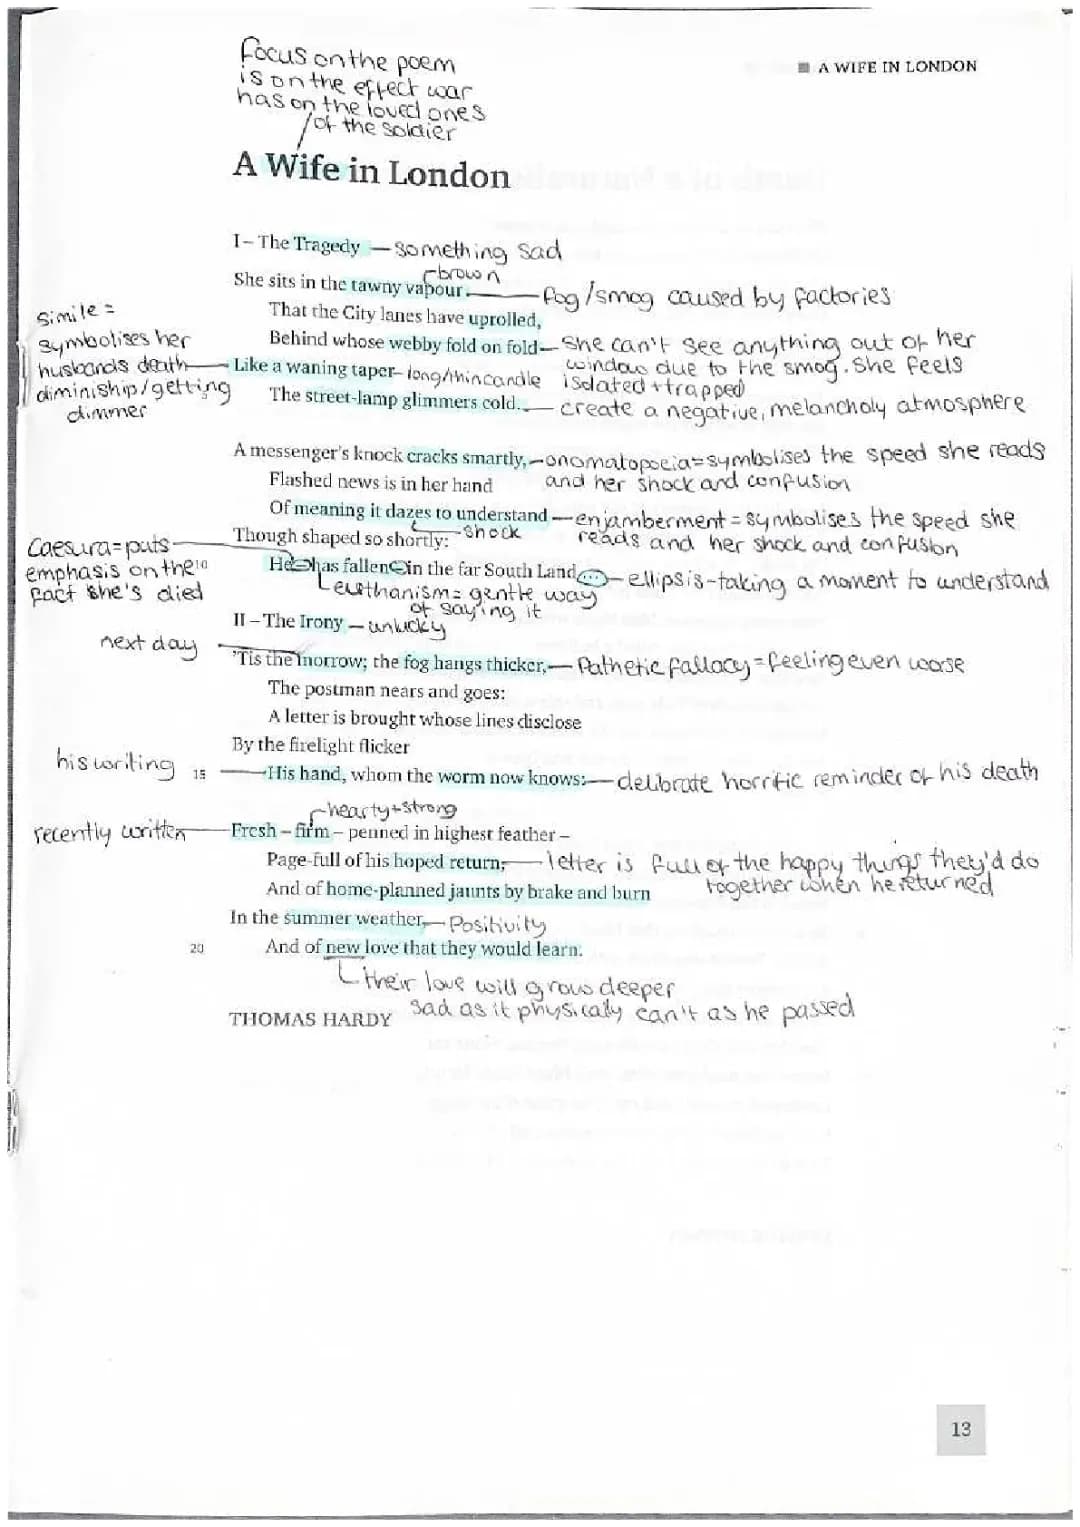 focus on the poem
is on the effect war
has on the loved ones
of the soldier
■ A WIFE IN LONDON
A Wife in London
I – The Tragedy — something sad
brown
She sits in the tawny vapour — fog/smog caused by factories
That the City lanes have uprolled,
Behind whose webby fold on fold — she can't see anything out of her
window due to the smog. She feels
isolated + trapped
simile =
symbolises her
husbands death
diminiship/getting
dimmer
Like a waning taper – long/thin candle
The street-lamp glimmers cold. — create a negative, melancholy atmosphere
A messenger's knock cracks smartly, – onomatopoeia = symbolises the speed she reads
and her shock and confusion
Flashed news is in her hand
Of meaning it dazes to understand — enjamberment = symbolises the speed she
reads and her shock and confusion
shock
Though shaped so shortly:
Caesura = puts
emphasis on the
fact she's died
10
He – has fallen – in the far South Land... – ellipsis – taking a moment to understand
euthanism = gentle way
of saying it
II – The Irony – unlucky
next day
'Tis the morrow; the fog hangs thicker, — Pathetic fallacy = feeling even worse
The postman nears and goes:
A letter is brought whose lines disclose
By the firelight flicker
his writing
15
His hand, whom the worm now knows: — delibrate horrific reminder of his death
hearty + strong
recently written
Fresh – firm – penned in highest feather –
Page-full of his hoped return, — letter is full of the happy things they'd do
together when he returned
And of home-planned jaunts by brake and burn
In the summer weather, — Positivity
20
And of new love that they would learn.
their love will grow deeper
sad as it physically can't as he passed
THOMAS HARDY
13